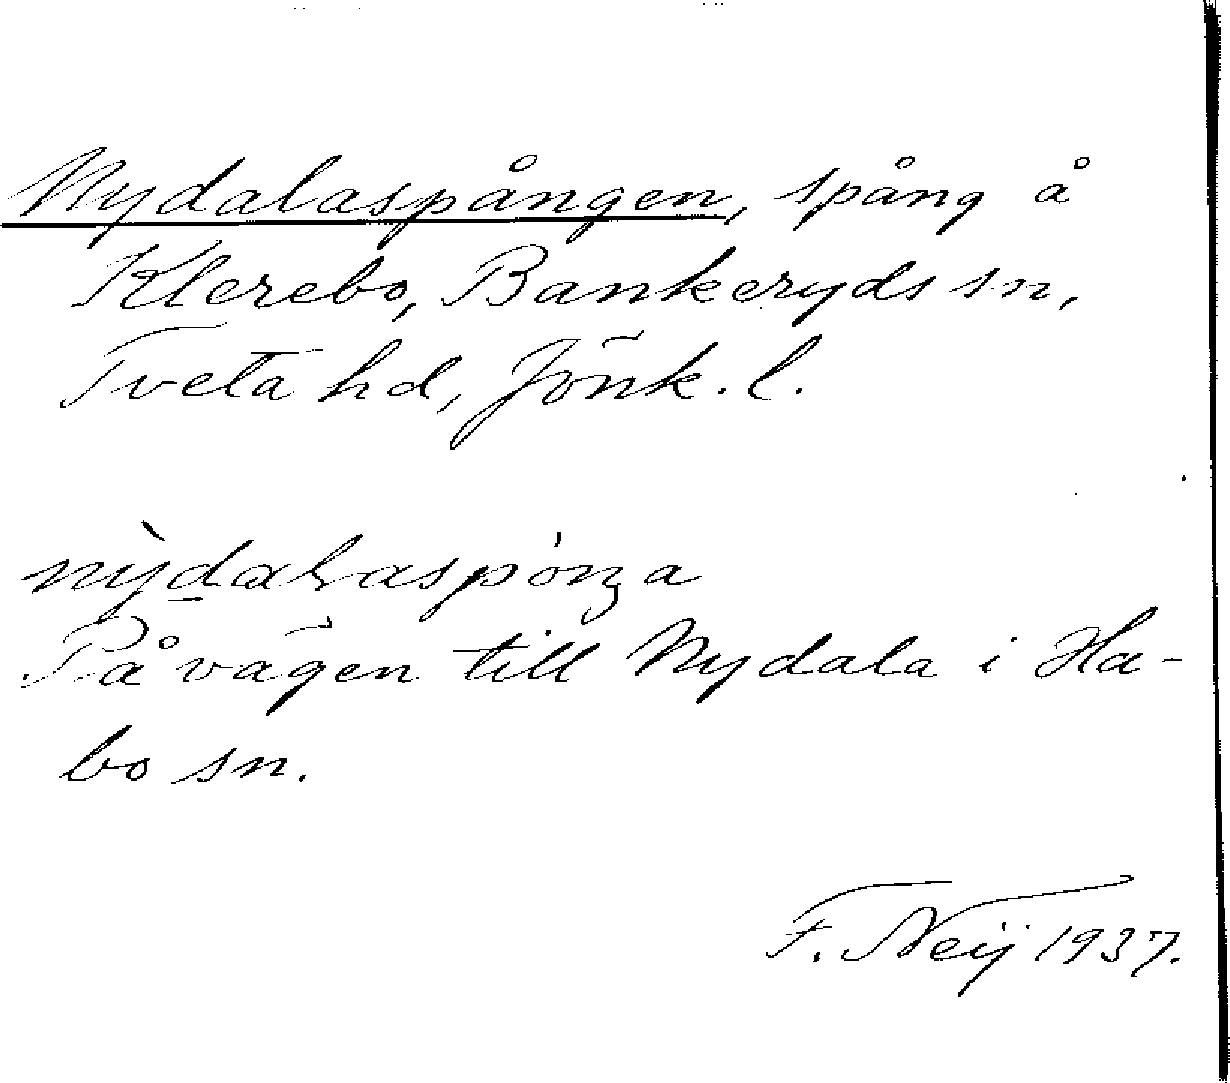 Nydalaspången, spång å
Klerebo, Bankeryds sn,
Tveta hd, Jönk. l.
På vägen till Nydala i Ha-
bo sn.
F. Neij 1937.